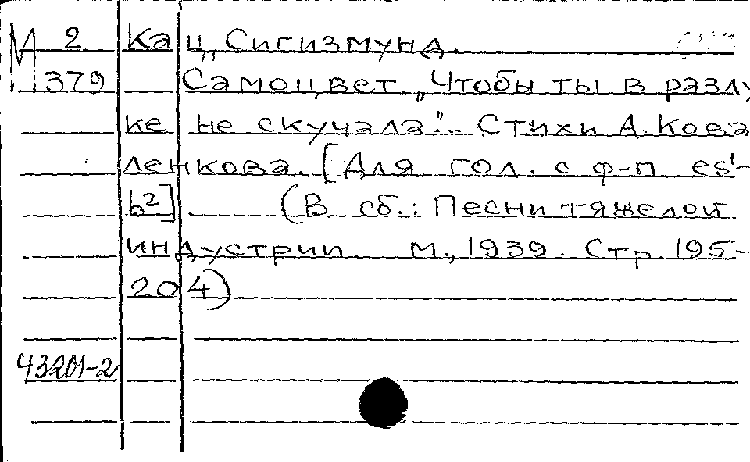 М 2 Кац, Сигизмунд.
1379 Самоцвет „Чтобы ты в разлу
ке не скучала". Стихи А. Кова
ленкова. [Для гол. с ф-п es¹-
b²]. (В сб.: Песни тяжелой
индустрии. М., 1939. Стр. 195-
204)
43201-2